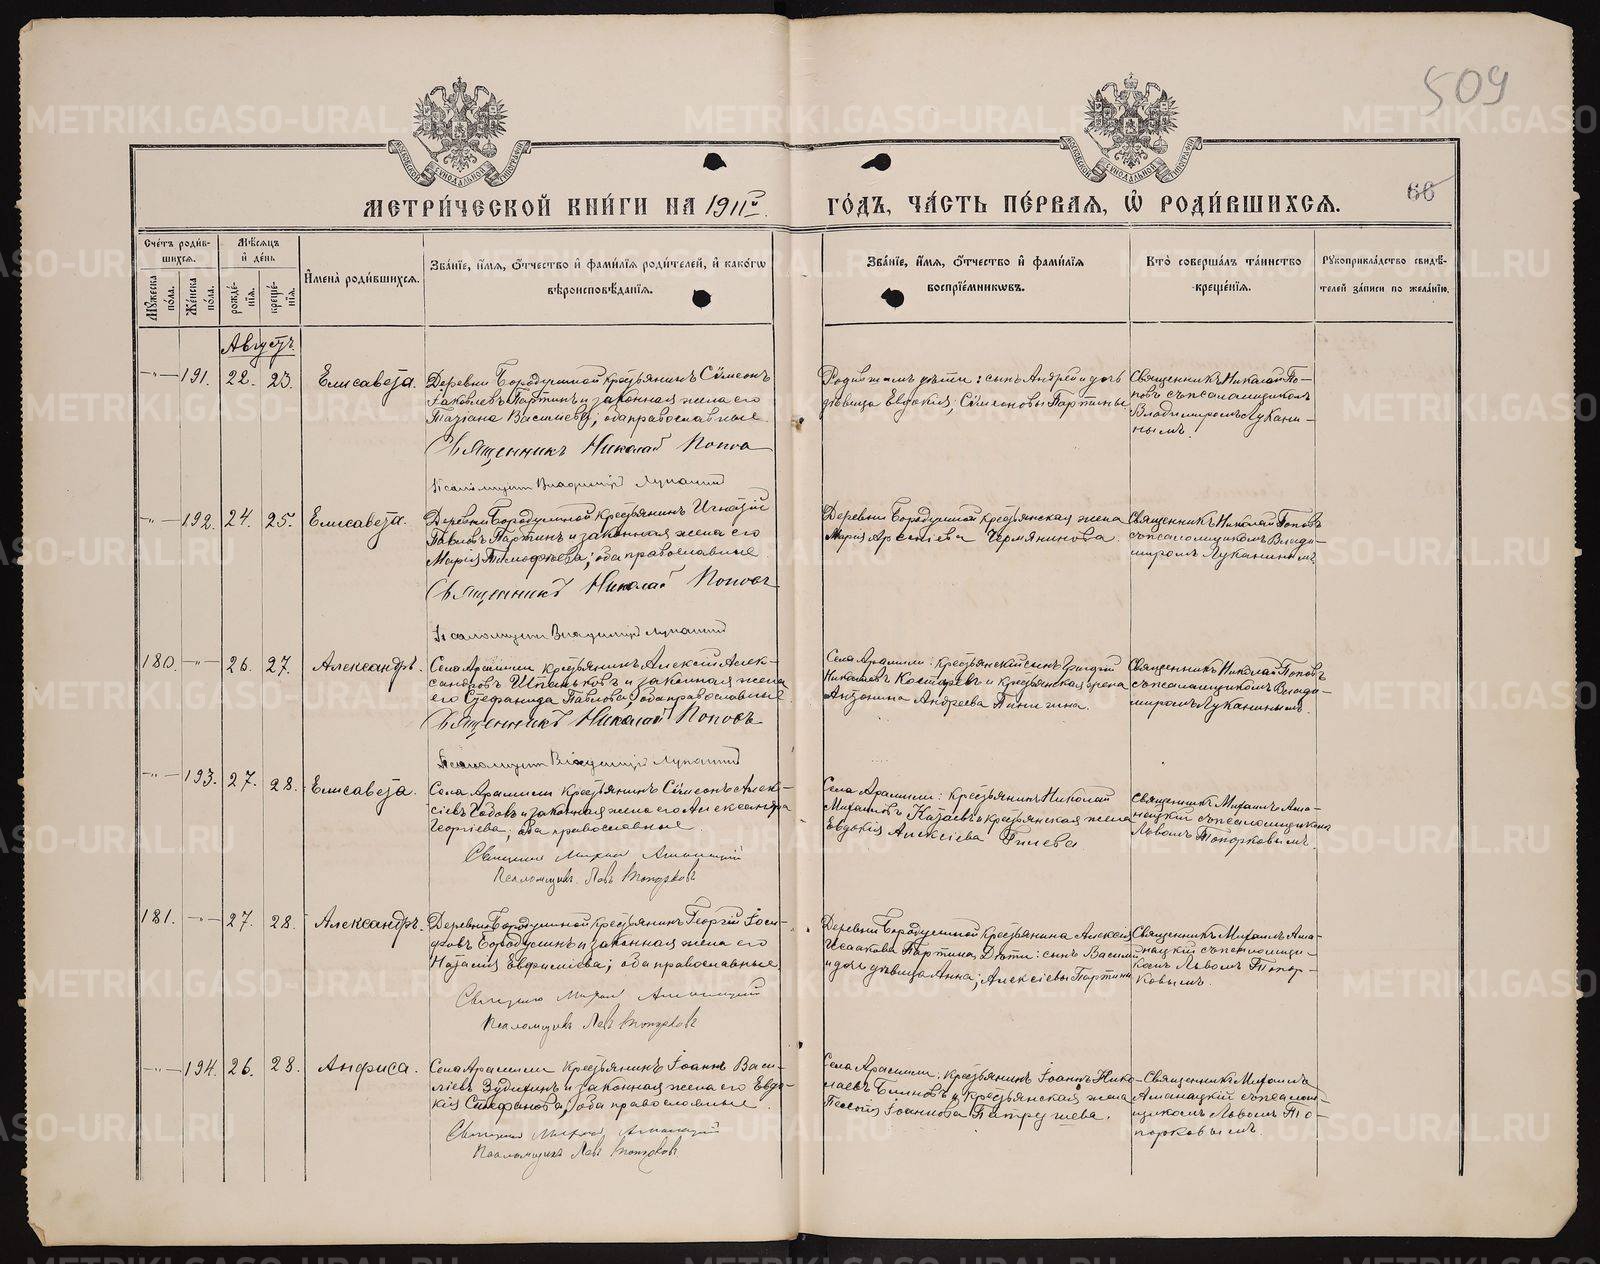 509
МОСКОВСКОЙ СѴНОДАЛЬНОЙ ТИПОГРАФІИ
МОСКОВСКОЙ СѴНОДАЛЬНОЙ ТИПОГРАФІИ
МЕТРИ́ЧЕСКОЙ КНИ́ГИ НА 1911й
ГО́ДЪ, ЧА́СТЬ ПЕ́РВАЯ, Ѽ РОДИ́ВШИХСЯ.
66
Сче́тъ роди́в-
шихся.
Мѣ́сяцъ
и҆ де́нь
Му́жеска по́ла.
Же́нска по́ла.
рожде́-
нія.
креще́-
нія.
И҆мена̀ роди́вшихся.
Зва́ніе, и҆́мя, ѻ҆́тчество и҆ фами́лія роди́телей, и҆ како́гѡ
вѣроисповѣ́данія.
Зва́ніе, и҆́мя, ѻ҆́тчество и҆ фами́лія
воспріе́мникѡвъ.
Кто̀ соверша́лъ та́инство
креще́нія.
Рукоприкла́дство свидѣ́-
телей за́писи по жела́нію.
Августъ
—"— 191. 22. 23. Елисавета.
Деревни Бородулиной крестьянинъ Сѵмеонъ
Іаковлевъ Партинъ и законная жена его
Татіана Васильева; оба православные.
Священникъ Николай Поповъ
Псаломщикъ Владиміръ Луканинъ
Родителей дѣти: сынъ Андрей и дочь
дѣвица Евдокія, Сѵмеоновы Партины
Священникъ Николай По-
повъ съ псаломщикомъ
Владимиромъ Лукани-
нымъ.
—"— 192. 24. 25. Елисавета.
Деревни Бородулиной крестьянинъ Игнатій
Павловъ Партинъ и законная жена его
Марія Тимофѣева; оба православные
Священникъ Николай Поповъ
Псаломщикъ Владиміръ Луканинъ
Деревни Бородулиной крестьянская жена
Марія Арсеніева Чермянинова.
Священникъ Николай Поповъ
съ псаломщикомъ Влади-
миромъ Луканинымъ
180. —"— 26. 27. Александръ.
Села Арамили крестьянинъ Алексій Алек-
сандровъ Шпаньковъ и законная жена
его Стефанида Павлова; оба православные
Священникъ Николай Поповъ
Псаломщикъ Владиміръ Луканинъ
Села Арамили: крестьянскій сынъ
Николаевъ Костаревъ и крестьянская
Антонина Андреева Пинигина.
Священникъ Николай Поповъ
съ псаломщикомъ Влади-
миромъ Луканинымъ.
—"— 193. 27. 28. Елисавета.
Села Арамили крестьянинъ Сѵмеонъ Алек-
сіевъ и законная жена его Александра
Георгіева; оба православные.
Священникъ Михаилъ
Псаломщикъ Левъ Топорковъ
Села Арамили: крестьянинъ Николай
Михайловъ Казаевъ и крестьянская жена
Евдокія Алексіева
Священникъ Михаилъ Ама-
нацкій съ псаломщикомъ
Львомъ Топорковымъ.
181. —"— 27. 28. Александръ.
Деревни Бородулиной крестьянинъ Георгій Іоси-
фовъ Бородулинъ и законная жена его
Наталія Евфиміева; оба православные.
Священникъ Михаилъ
Псаломщикъ Левъ Топорковъ
Деревни Бородулиной крестьянина Алексія
Исаакова Партина дѣти: сынъ Василій
и дочь дѣвица Анна; Алексіевы Партины
Священникъ Михаилъ Ама-
нацкій съ псаломщи-
комъ Львомъ Топор-
ковымъ.
—"— 194. 26. 28. Анфиса.
Села Арамили крестьянинъ Іоаннъ Васи-
ліевъ Зудихинъ и законная жена его Евдо-
кія Стефанова; оба православные.
Священникъ Михаилъ
Псаломщикъ Левъ Топорковъ
Села Арамили: крестьянинъ Іоаннъ Нико-
лаевъ и крестьянская жена
Пелагія Іоаннова
Священникъ Михаилъ
Аманацкій съ псалом-
щикомъ Львомъ То-
порковымъ.
METRIKI.GASO-URAL.RU